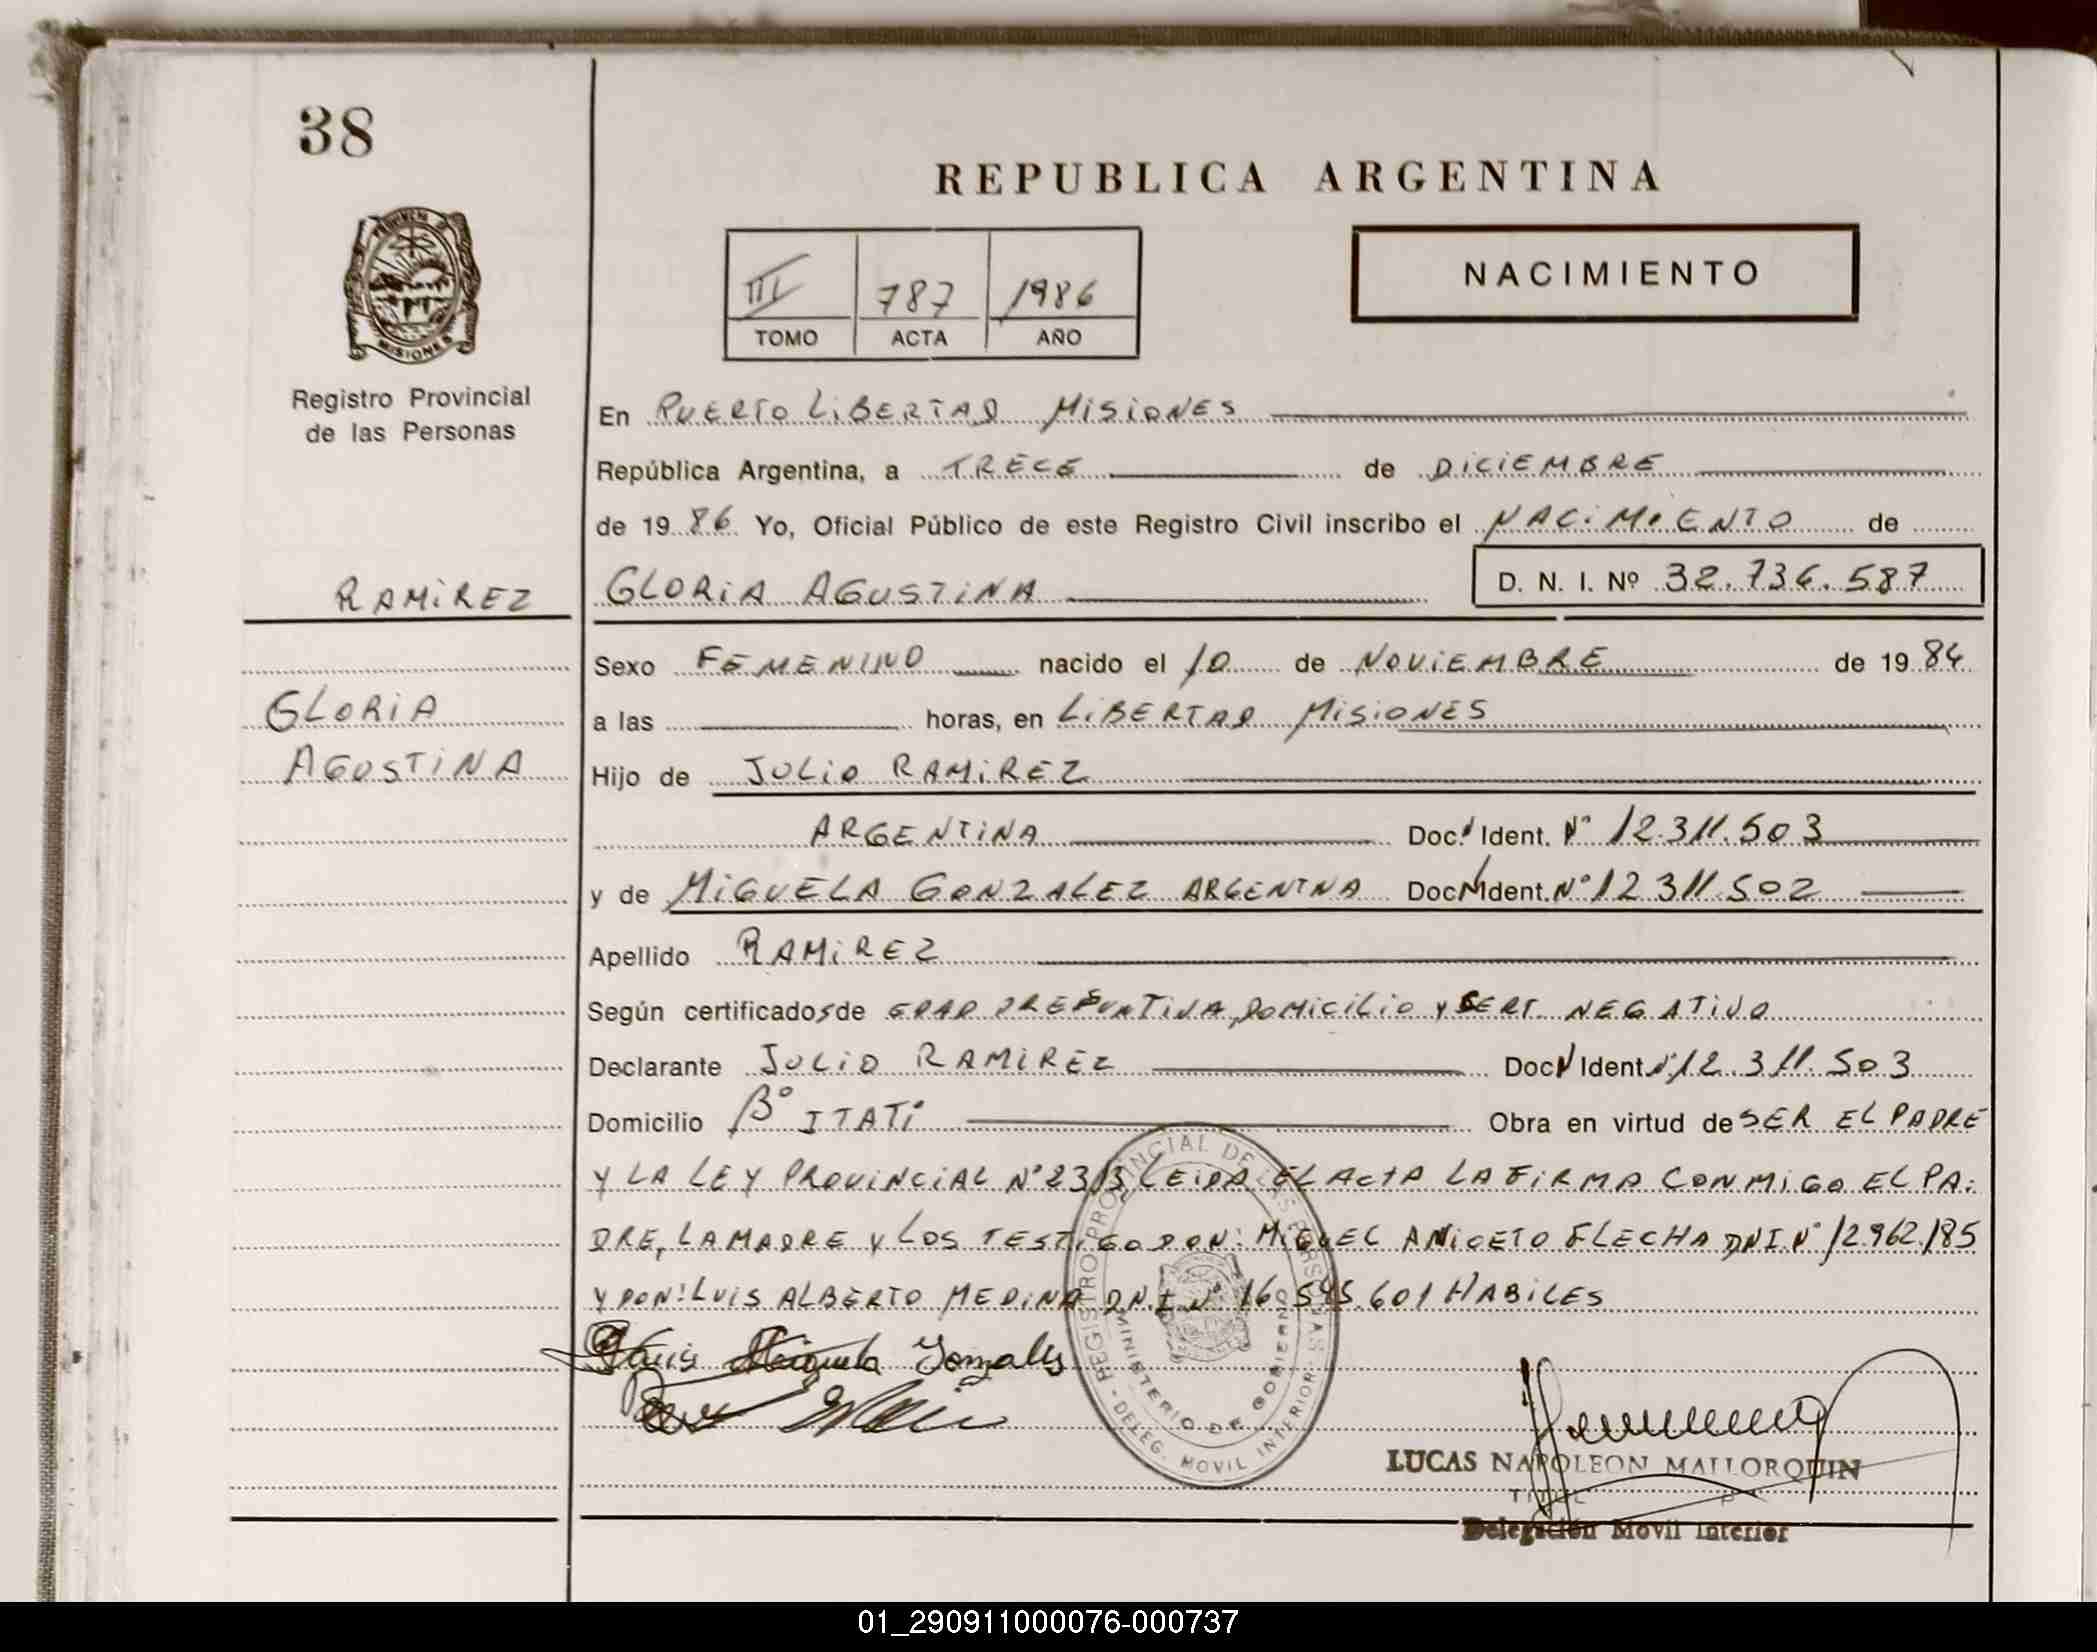 38
REPUBLICA ARGENTINA
PROVINCIA DE MISIONES
NACIMIENTO
III 787 1986
TOMO ACTA AÑO
Registro Provincial
de las Personas
En PUERTO LIBERTAD MISIONES
República Argentina, a TRECE de DICIEMBRE
de 1986 Yo, Oficial Público de este Registro Civil inscribo el NACIMIENTO de
RAMIREZ GLORIA AGUSTINA D. N. I. Nº 32.736.587
Sexo FEMENINO nacido el 10 de NOVIEMBRE de 1984
GLORIA
a las horas, en LIBERTAD MISIONES
AGUSTINA
Hijo de JULIO RAMIREZ
ARGENTINA Doc. Ident. Nº 12.311.503
y de MIGUELA GONZALEZ ARGENTNA Doc. Ident. Nº 12.311.502
Apellido RAMIREZ
Según certificados de EDAD PRESUNTIVA, DOMICILIO Y CERT. NEGATIVO
Declarante JULIO RAMIREZ Doc. Ident. Nº 12.311.503
Domicilio Bº ITATI Obra en virtud de SER EL PADRE
Y LA LEY PROVINCIAL Nº 2313 LEIDA EL ACTA LA FIRMA CONMIGO EL PA-
DRE, LA MADRE Y LOS TESTIGO DON: MIGUEL ANICETO FLECHA DNI. Nº 12962185
Y DON: LUIS ALBERTO MEDINA D.N.I. Nº 16.545.601 HABILES
Miguela Gonzales
REGISTRO PROVINCIAL DE LAS PERSONAS
MINISTERIO DE GOBIERNO
DELEG. MOVIL INTERIOR
LUCAS NAPOLEON MALLORQUIN
Delegación Movil Interior
01_290911000076-000737